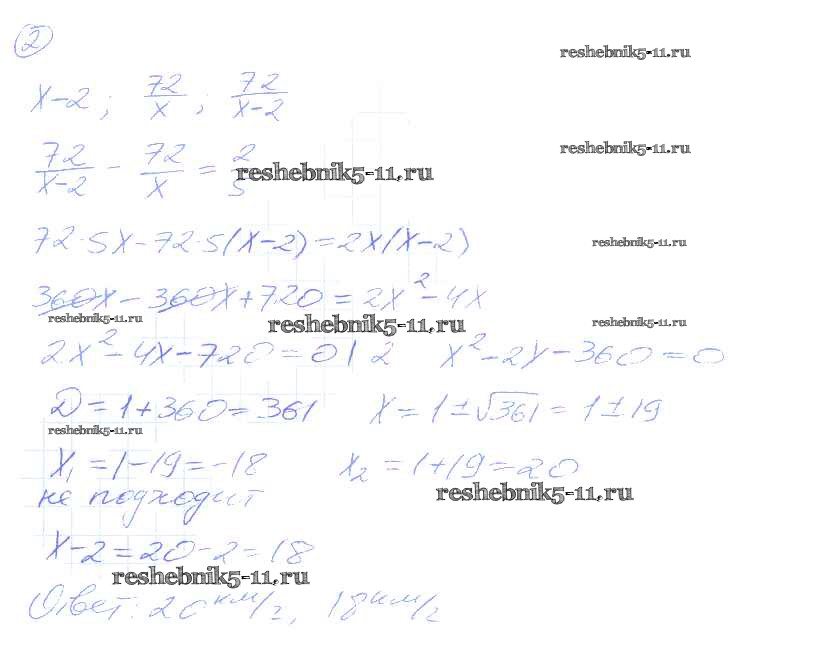 ②
reshebnik5-11.ru
x-2; 72/x; 72/(x-2)
72/(x-2) - 72/x = 2/5
reshebnik5-11.ru
reshebnik5-11.ru
72·5x-72·5(x-2)=2x(x-2)
reshebnik5-11.ru
360x-360x+720=2x²-4x
reshebnik5-11.ru
reshebnik5-11.ru
reshebnik5-11.ru
2x²-4x-720=0|2 x²-2x-360=0
D=1+360=361 x=1±√361=1±19
reshebnik5-11.ru
x₁=1-19=-18 x₂=1+19=20
не подходит
reshebnik5-11.ru
x-2=20-2=18
reshebnik5-11.ru
Ответ: 20 км/г, 18 км/г